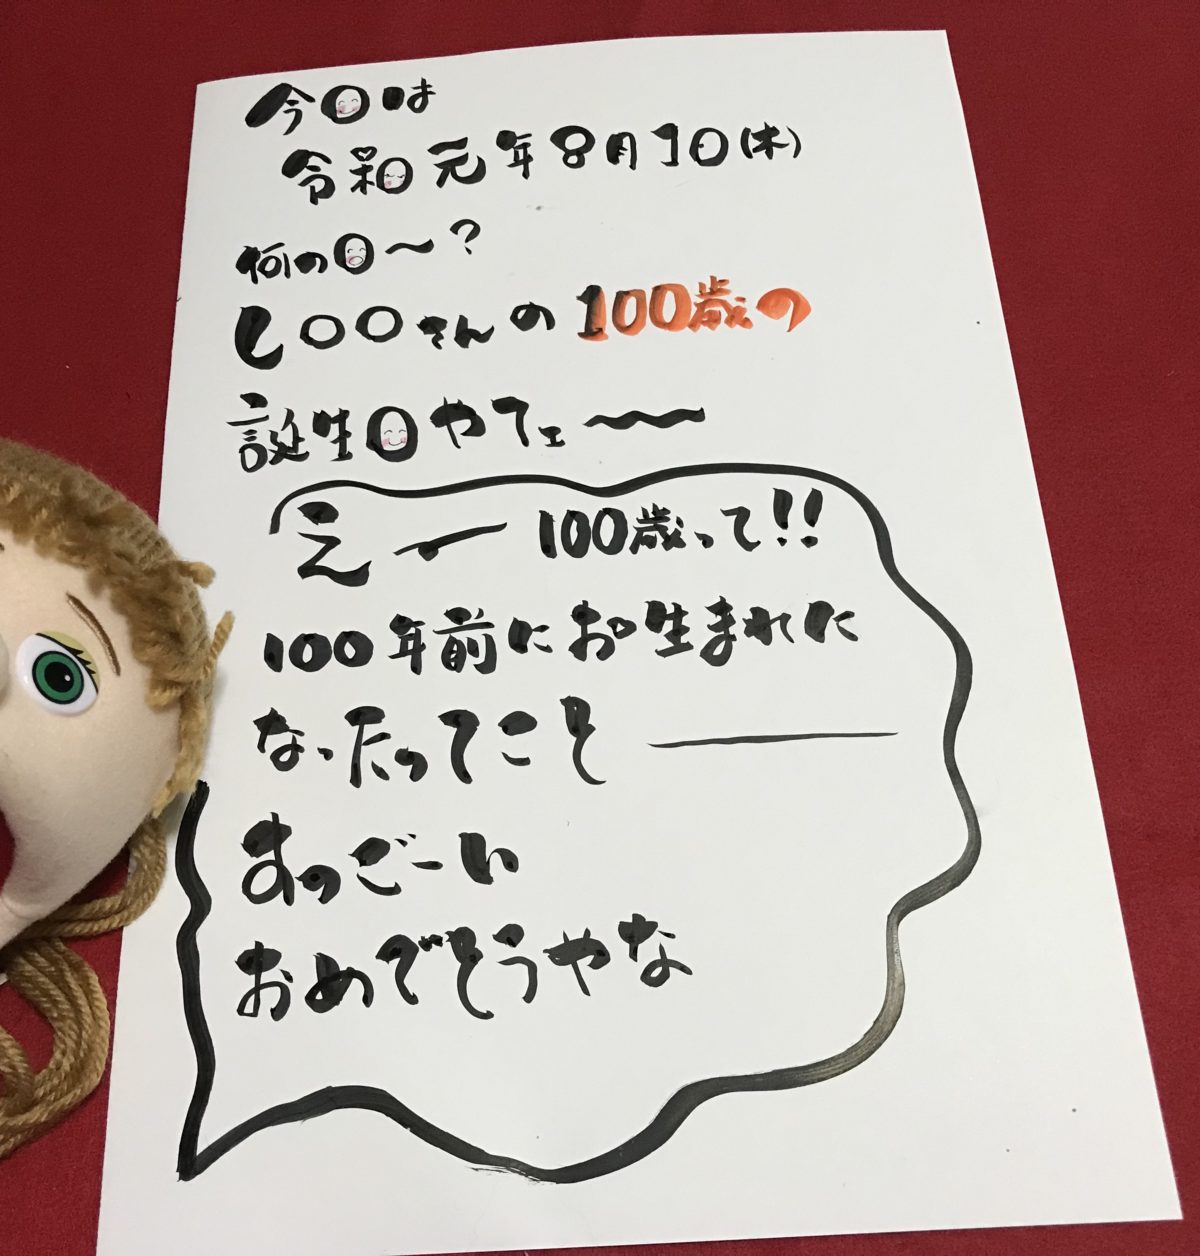 今日は
令和元年8月1日(木)
何の日～?
し〇〇さんの100歳の
誕生日やてェ～～
えー 100歳って!!
100年前にお生まれに
なったってこと――
すっごーい
おめでとうやな